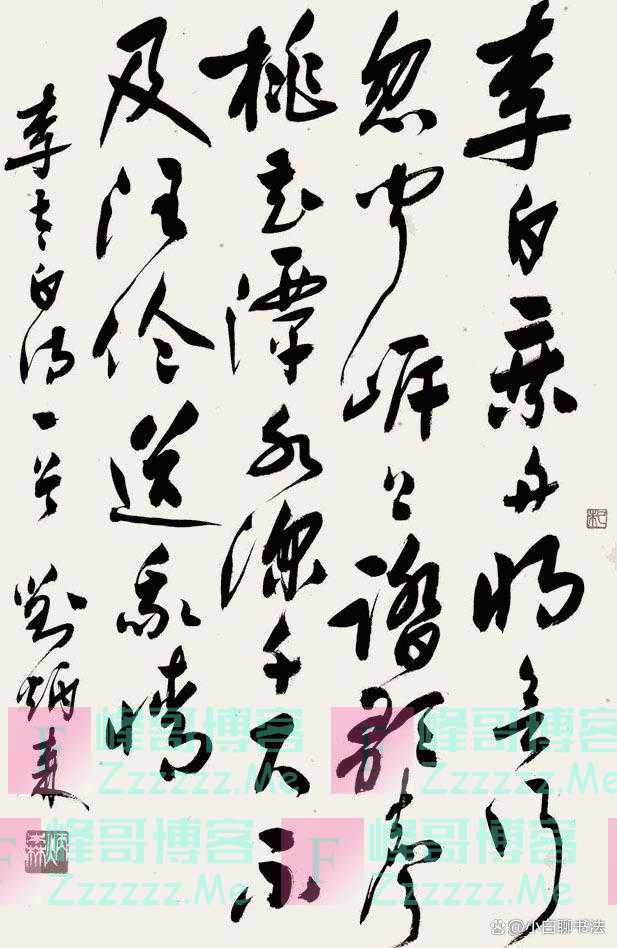 李白乘舟将行
忽闻岸上踏歌声
桃花潭水深千尺不
及汪伦送我情
李太白诗一首 刘炳森
炳森
F 峰哥博客 Zzzzzz.Me
F 峰哥博客 Zzzzzz.Me
峰哥博客 Zzzzzz.Me
F 峰哥博客 Zzzzzz.Me
@小白聊书法